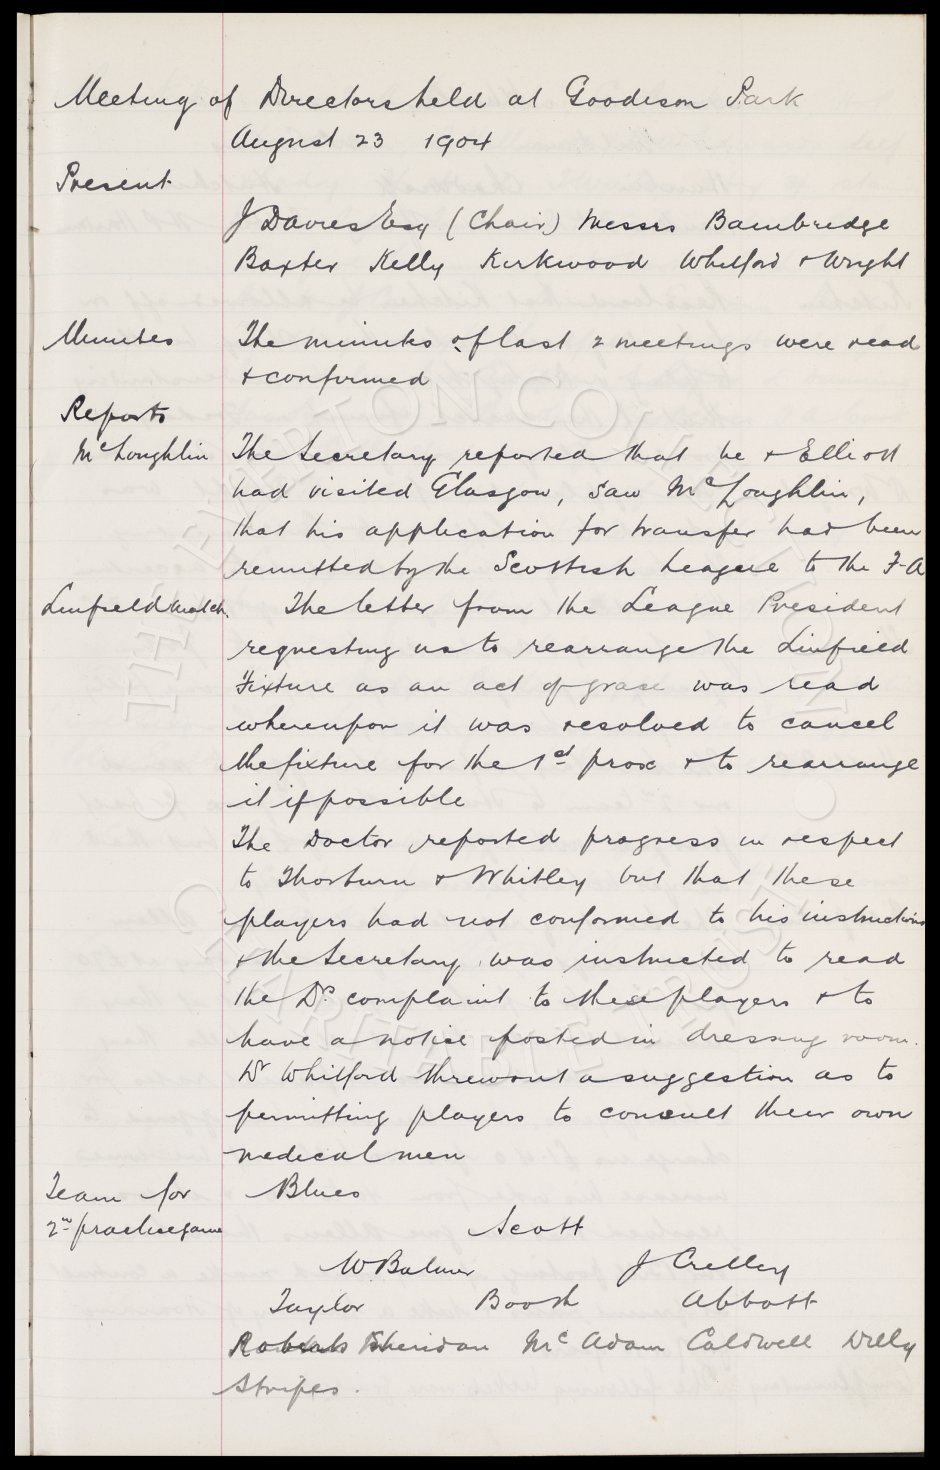 Meeting of Directors held at Goodison Park
August 23 1904
Present
J Davies Esq (Chair) Messrs Bainbridge
Baxter Kelly Kirkwood Whitford & Wright
Minutes The minutes of last 2 meetings were read
& confirmed
Reports
McLoughlin The Secretary reported that he & Elliott
had visited Glasgow, saw McLoughlin,
that his application for transfer had been
remitted by the Scottish League to the F.A
Linfield match. The letter from the League President
requesting us to rearrange the Linfield
Fixture as an act of grace was read
whereupon it was resolved to cancel
the fixture for the 1st prox & to rearrange
it if possible
The Doctor reported progress in respect
to Thorburn & Whitley but that these
players had not conformed to his instructions
& the Secretary was instructed to read
the Drs complaint to these players & to
have a notice posted in dressing room.
Dr Whitford threw out a suggestion as to
permitting players to consult their own
medical men
Team for Blues
2nd practice game Scott
W Balmer J Crelley
Taylor Booth Abbott
Sheridan Mc Adam Caldwell Dilly
Stripes.
THE EVERTON COLLECTION
CHARITABLE TRUST